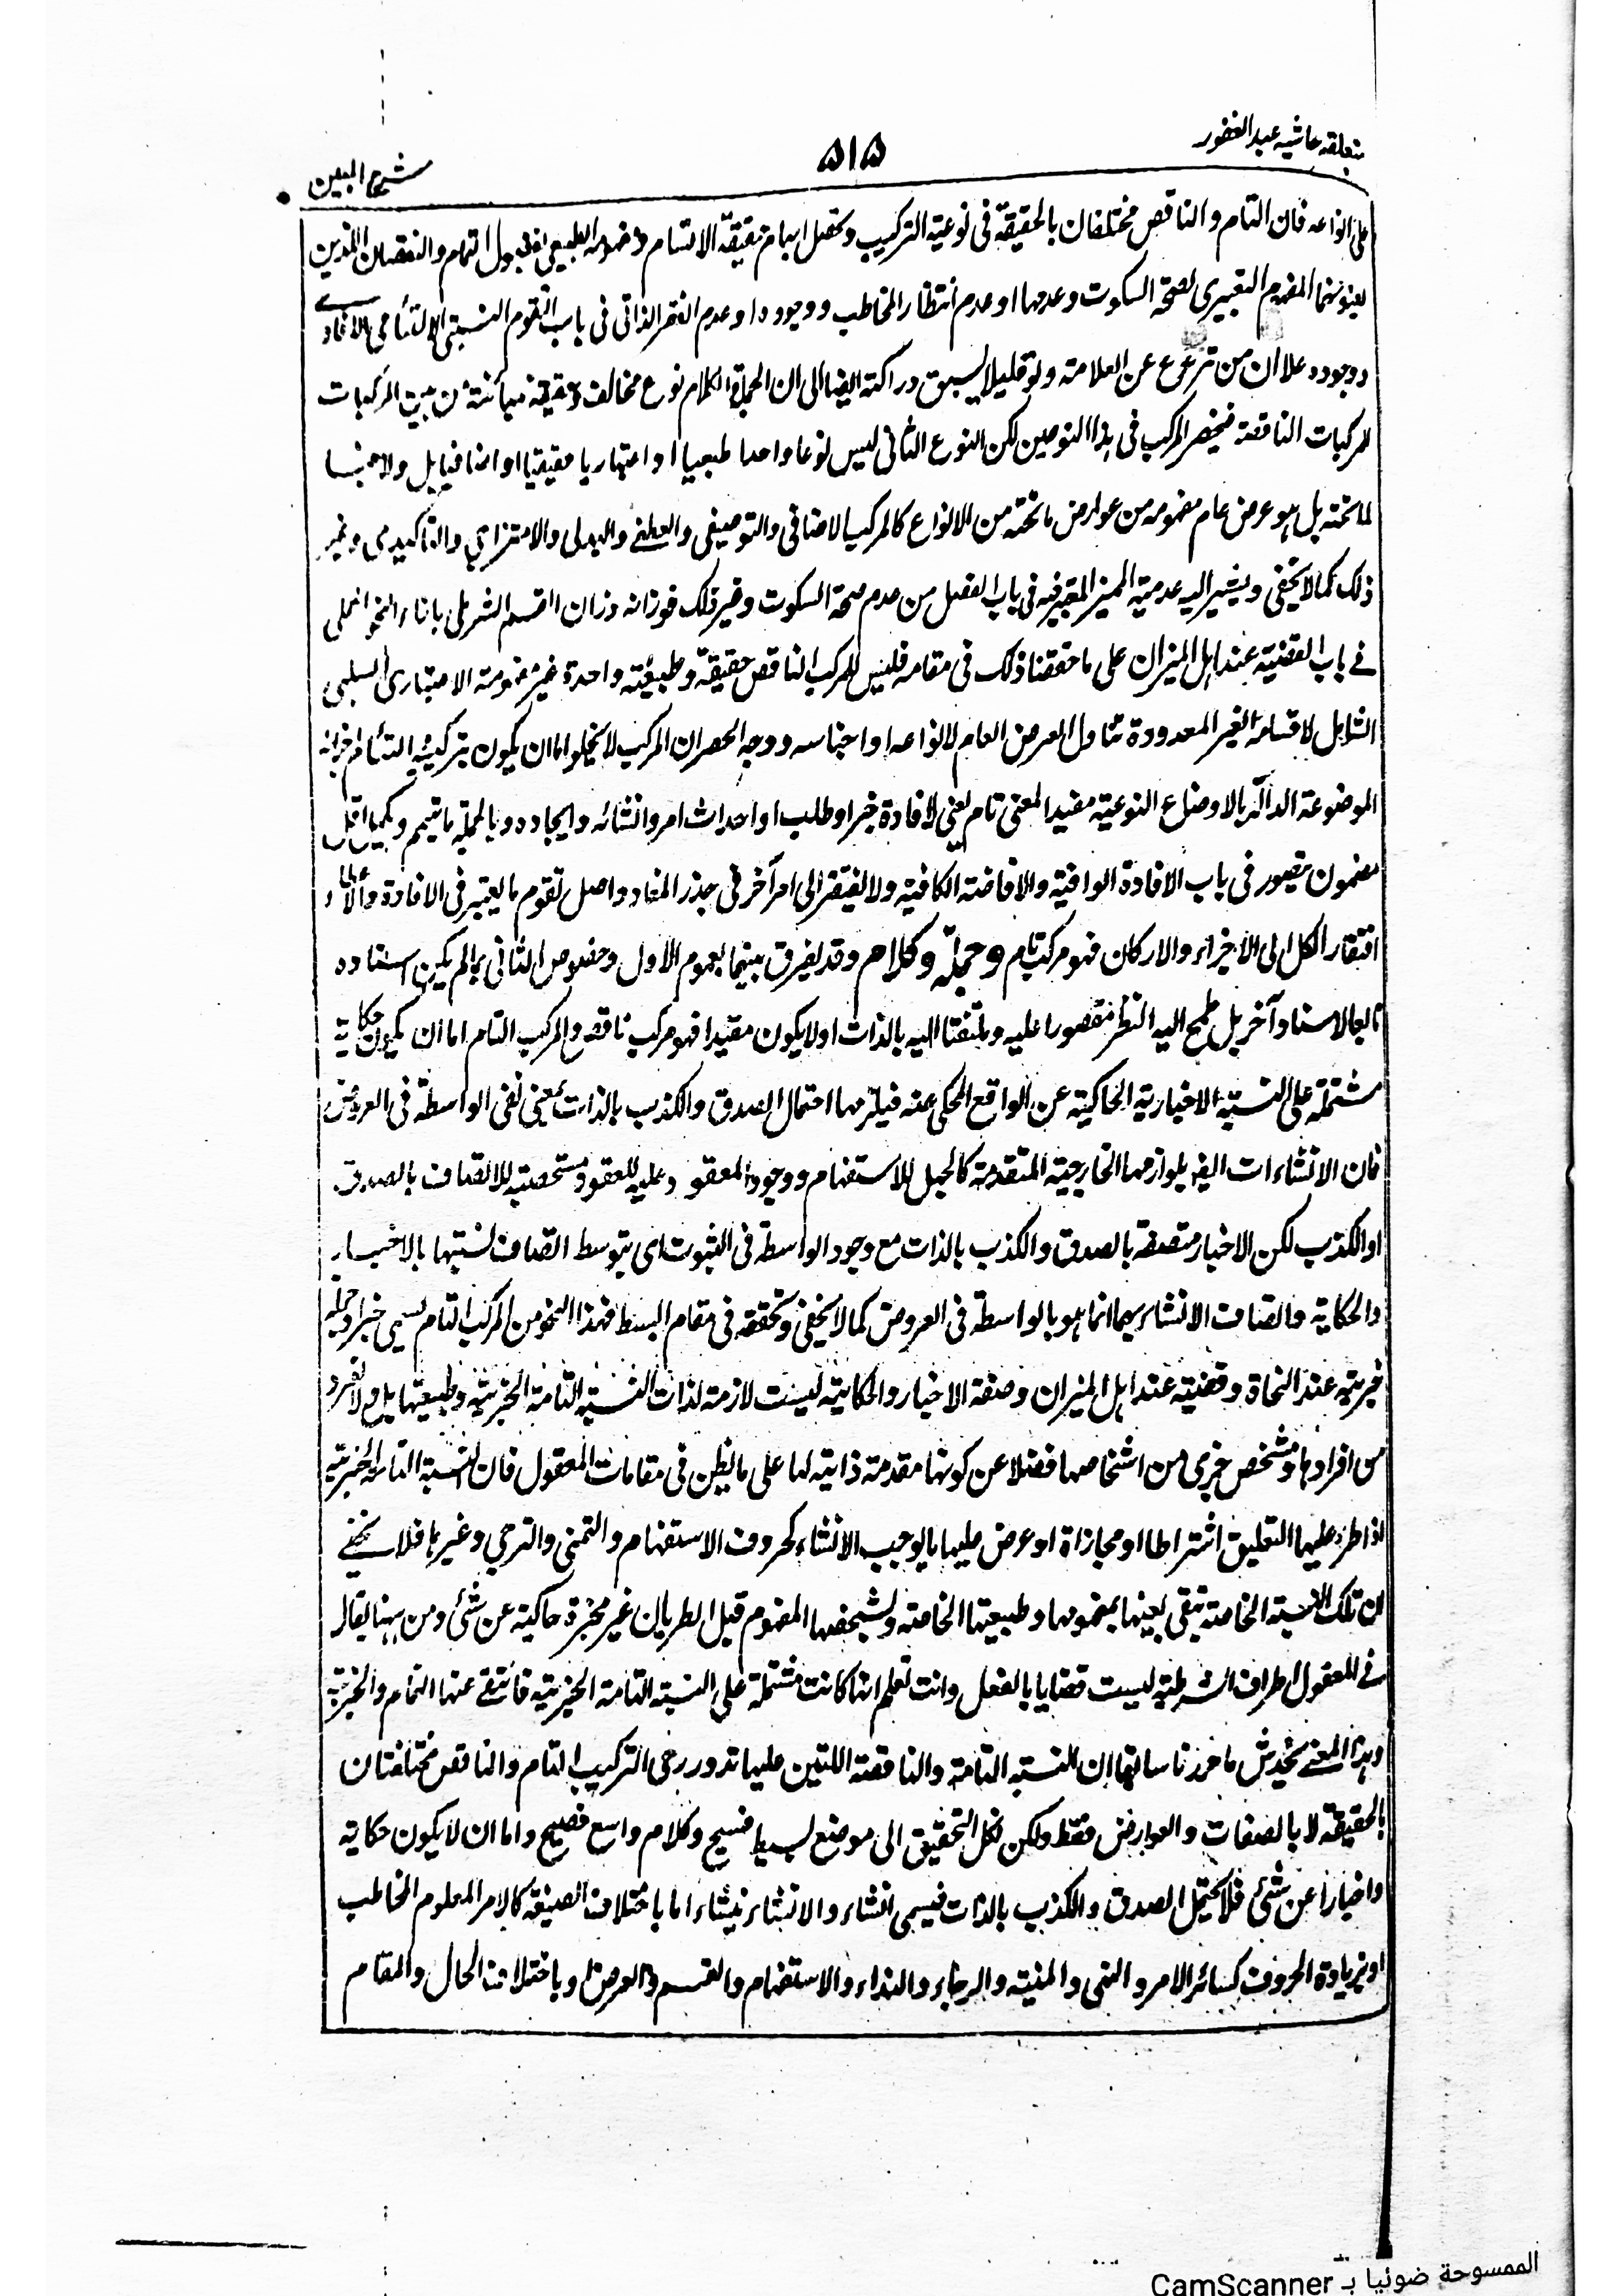 متعلقه حاشيه عبد الغفور
۵۱۵
شرح المبين
على انواعه فان التام والناقص مختلفان بالحقيقة فى نوعية التركيب وتحصل ابهام حقيقة الانتسام الطبيعى التمام والنقصان اللذين
المفهوم التعبيرى لصحة السكوت وعدمها او عدم انتظار المخاطب ووجوده او عدم الفقر الذاتى فى باب التقوم النسبتى
ووجوده علا ان من ترعرع عن العلامة ولو قليلا يسبق دراكته ايضا الى ان الجملة الكلام نوع مخالف من بين المركبات
المركبات الناقصة فينحصر المركب فى هذا النوعين لكن النوع الثانى ليس نوعا واحدا طبعيا او اعتباريا حقيقيا او اضافيا بل ولا جنسا
لما تحته بل هو عرض عام مفهومه من عوارض ما تحته من الانواع كالمركب الاضافى والتوصيفى والعطفے والبدلى والامتزاجي والتاكيدى وغير
ذلك كما لا يخفى ويشير اليه عدمية المميز المعتبر فيه فى باب الفصل من عدم صحة السكوت وغير ذلك فوزانه وزان القسم الشرطى بازاء النحو الحملى
فے باب القضية عند اهل الميزان على ما حققنا ذلك فى مقامه فليس للمركب الناقص حقيقة وطبيعة واحدة غير مفهومه الاعتبارى السلبى
الشامل لاقسامه الغير المعدودة تناول العرض العام لانواعه او اجناسه ووجه الحصر ان المركب لا يخلو اما ان يكون بتركيبه التام اجزائه
الموضوعة الدالة بالاوضاع النوعية مفيدا لمعنى تام يعنى لافادة خبر او طلب او احداث امر وانشائه وايجاده وبالجملة ما يتم
مضمون يقصور فى باب الافادة الوافية والافاضة الكافية ولا يفتقر الى امر آخر فى جذر المفاد واصل تقوم ما يعتبر فى الافادة
افتقار الكل الى الاجزاء والاركان فهو مركب تام وجملة وكلام وقد يفرق بينهما بعموم الاول وخصوص الثانى بما لم يكن اسناده
تابعا لاسناد آخر بل طمح اليه النظر مقصورا عليه وملتفتا اليه بالذات او لا يكون مفيدا فهو مركب ناقص والمركب التام اما ان يكون حكاية
مشتملة على النسبة الاخبارية الحاكية عن الواقع المحكى عنه فيلزمها احتمال الصدق والكذب بالذات بمعنى نفى الواسطة فى العروض
فان الانشاءات ايضا بلوازمها الخارجية المتقدمة كالجهل للاستفهام ووجود المعقود عليه للعقود مستحقة للاتصاف بالصدق
او الكذب لكن الاخبار متصفة بالصدق والكذب بالذات مع وجود الواسطة فى الثبوت اى بتوسط اتصاف نسبتها بالاخبار
والحكاية واتصاف الانشاء بهما انما هو بالواسطة فى العروض كما لا يخفى وتحققه فى مقام البسط فهذا النحو من المركب التام يسمى خبرا وجملة
خبرية عند النحاة وقضية عند اهل الميزان وصفة الاخبار والحكاية ليست لازمة لذات النسبة التامة الخبرية وطبيعتها بل ولا لفرد
من افرادها ومشخص جزى من اشخاصها فضلا عن كونها مقدمة ذاتية لها على ما يظن فى مقامات المعقول فان النسبة التامة الخبرية
اذا طرء عليها التعليق اشتراطا او مجازاة او عرض عليها ما يوجب الانشاء كحروف الاستفهام والتمنى والترجي وغيرها فلا يخفے
ان تلك النسبة الخاصة تبقى بعينها بمفهومها وطبيعتها الخاصة وتشخصها المفهوم قبل الطريان غير مخبرة حاكية عن شئ ومن ههنا يقال
فے المعقول اطراف الشرطية ليست قضايا بالفعل وانت تعلم انها كانت مشتملة على النسبة التامة الخبرية فانتفے عنها التمام والخبرية
وبهذا المعنے يخدش ما حررنا سابقا ان النسبة التامة والناقصة اللتين عليها تدور رحى التركيب التام والناقص مختلفتان
بالحقيقة لا بالصفات والعوارض فقط ولكن لكل التحقيق الى موضع بسيط فسيح وكلام واسع فصيح واما ان لا يكون حكاية
واخبارا عن شئ فلا يحتمل الصدق والكذب بالذات فيسمى انشاء والانشاء ينشاء اما باختلاف الصيغة كالامر المعلوم المخاطب
او بزيادة الحروف كسائر الامر والنهى والمنية والرجاء والنداء والاستفهام والقسم والعرض او باختلاف الحال والمقام
الممسوحة ضوئيا بـ CamScanner